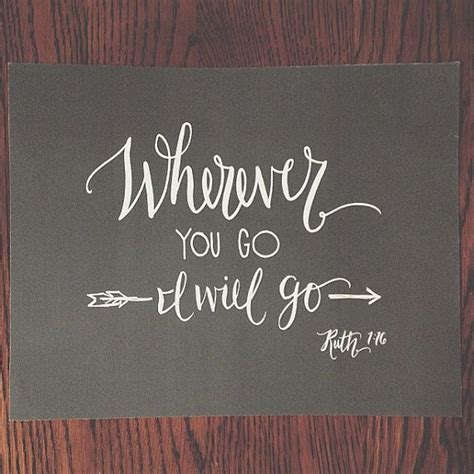 Wherever
YOU GO
I will go
Ruth 1:16